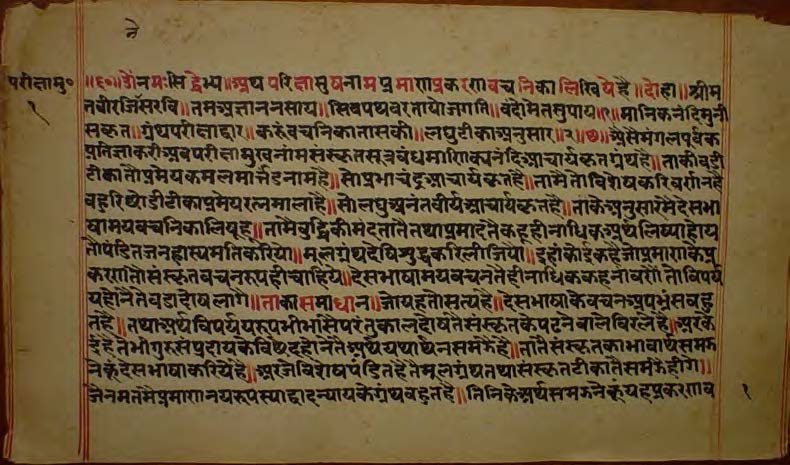 ने
परीक्षामु॰
१
॥६०॥ॐनमःसिद्धेभ्य॥अथपरिक्षामुषनामप्रमाणप्रकरणवचनिकालिखियेहै॥दोहा॥श्रीम
तवीरजिंसरवि॥तमअज्ञाननसाय॥सिवपथवरतायोजगति॥वंदौमैतसुपाय॥१॥मानिकनंदिमुनी
सकृत॥ग्रंथपरीक्षाद्वार॥करूंवचनिकातासकी॥लघुटीकाअनुसार॥२॥छ॥अैसेमंगलपूर्वक
प्रतिज्ञाकरीअवपरीक्षामुखनांमसंस्कृतसूत्रवंधमाणिक्यनंदिआचार्यकृतग्रंथहै॥ताकीवडी
टीकातौप्रमेयकमलमार्त्तंडनामहै॥सोप्रभाचंद्रआचार्यकृतहै॥तामैतोविशेषकरिवर्णनहै
वहुरिथोडीटीकाप्रमेयरत्नमालाहै॥सोलघुअनंतवीर्यआचार्यकृतहै॥ताकेअनुसारमैदेसभा
षामयवचनिकालिषूहू॥तामैवुद्धिकीमंदतातैतथाप्रमादतैकहूहीनाधिकअर्थलिष्याहोय
तोपंडितजनहास्यमतिकरियो॥मूलग्रंथदेषिशुद्धकरिलीजियो॥इहांकोईकहैजोप्रमाणकेप्र
करणतोसंस्कृतवचनरूपहीचाहिये॥देसभाषामयवचनतेहीनाधिककहनांवणैतोविपर्य
यहोनैतेवडादोषलागे॥ताकासमाधान॥जोयहतोसत्यहै॥देसभाषाकेवचनअपभ्रंसवहु
तहै॥तथाअर्थविपर्ययरूपभीभासैपरंतुकालदोषतैसंस्कृतकेपढनेवालेविरलेहै॥अरके
ईहैतेभीगुरुसंप्रदायकेविछेदहोनेतैअर्थयथार्थनसमझैहै॥तातैसंस्कृतकाभावार्थसमझ
नेकूंदेसभाषाकरियेहै॥अरजेविशेषपंडितहैतेमूलग्रंथतथासंस्कृतटीकातैसमझैहीगे॥
जैनमतमैप्रमाणनयरूपस्याद्वादन्यायकेग्रंथवहुतहै॥तिनिकेअर्थसमझनेकूंयहप्रकरणव
१